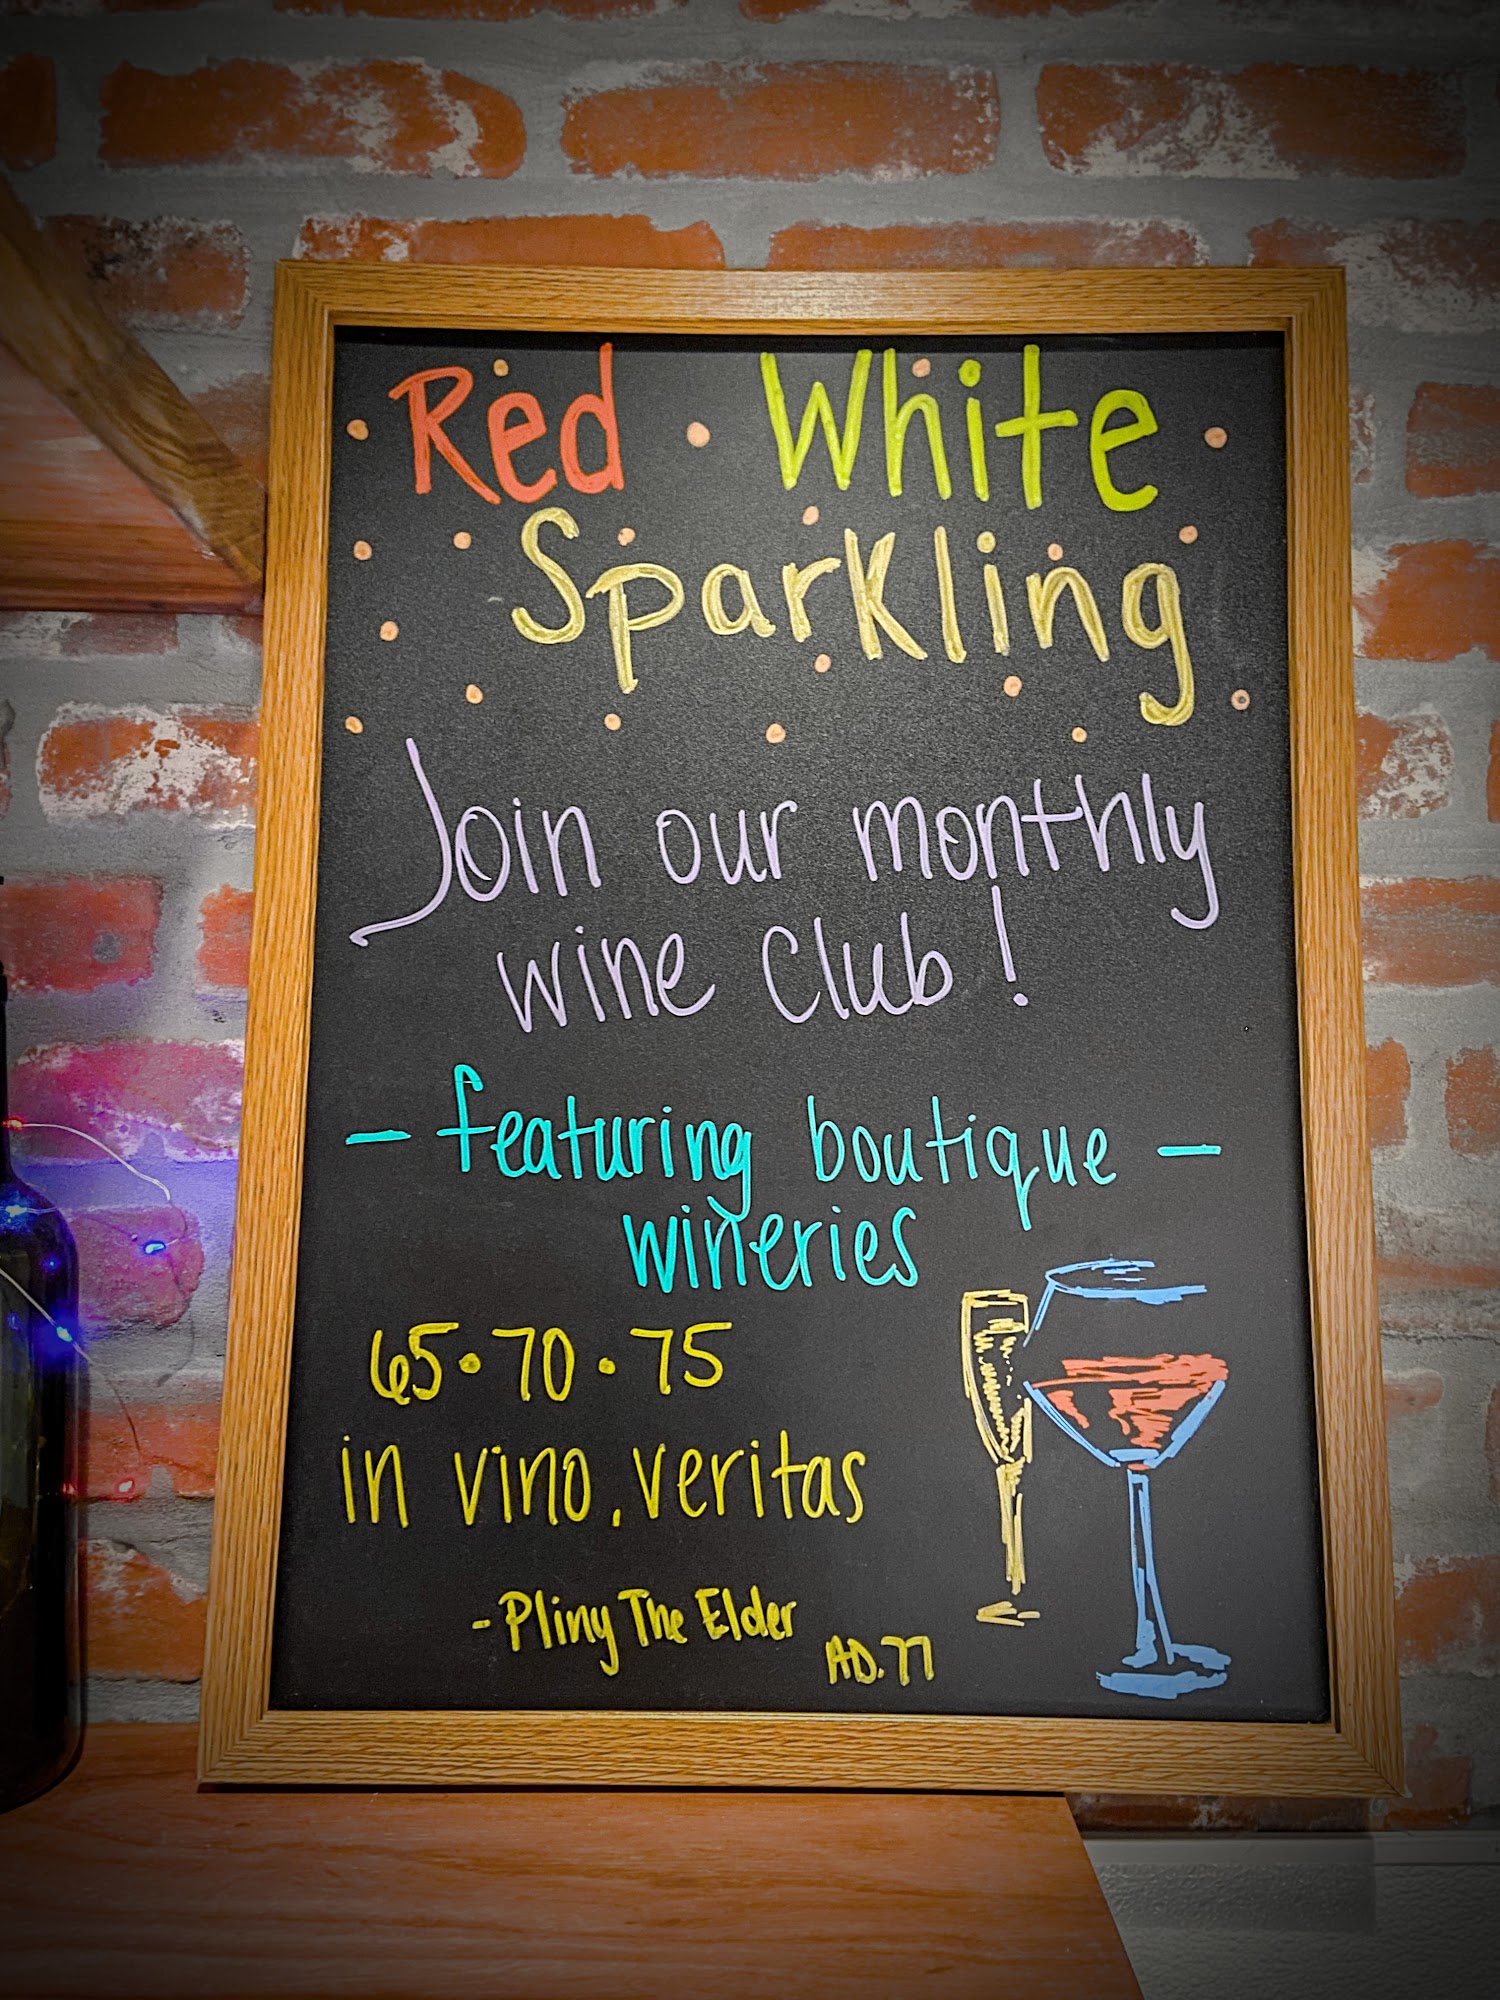 Red • White
Sparkling
Join our monthly
wine club!
- featuring boutique -
wineries
65 • 70 • 75
in vino, veritas
- Pliny The Elder
AD. 77